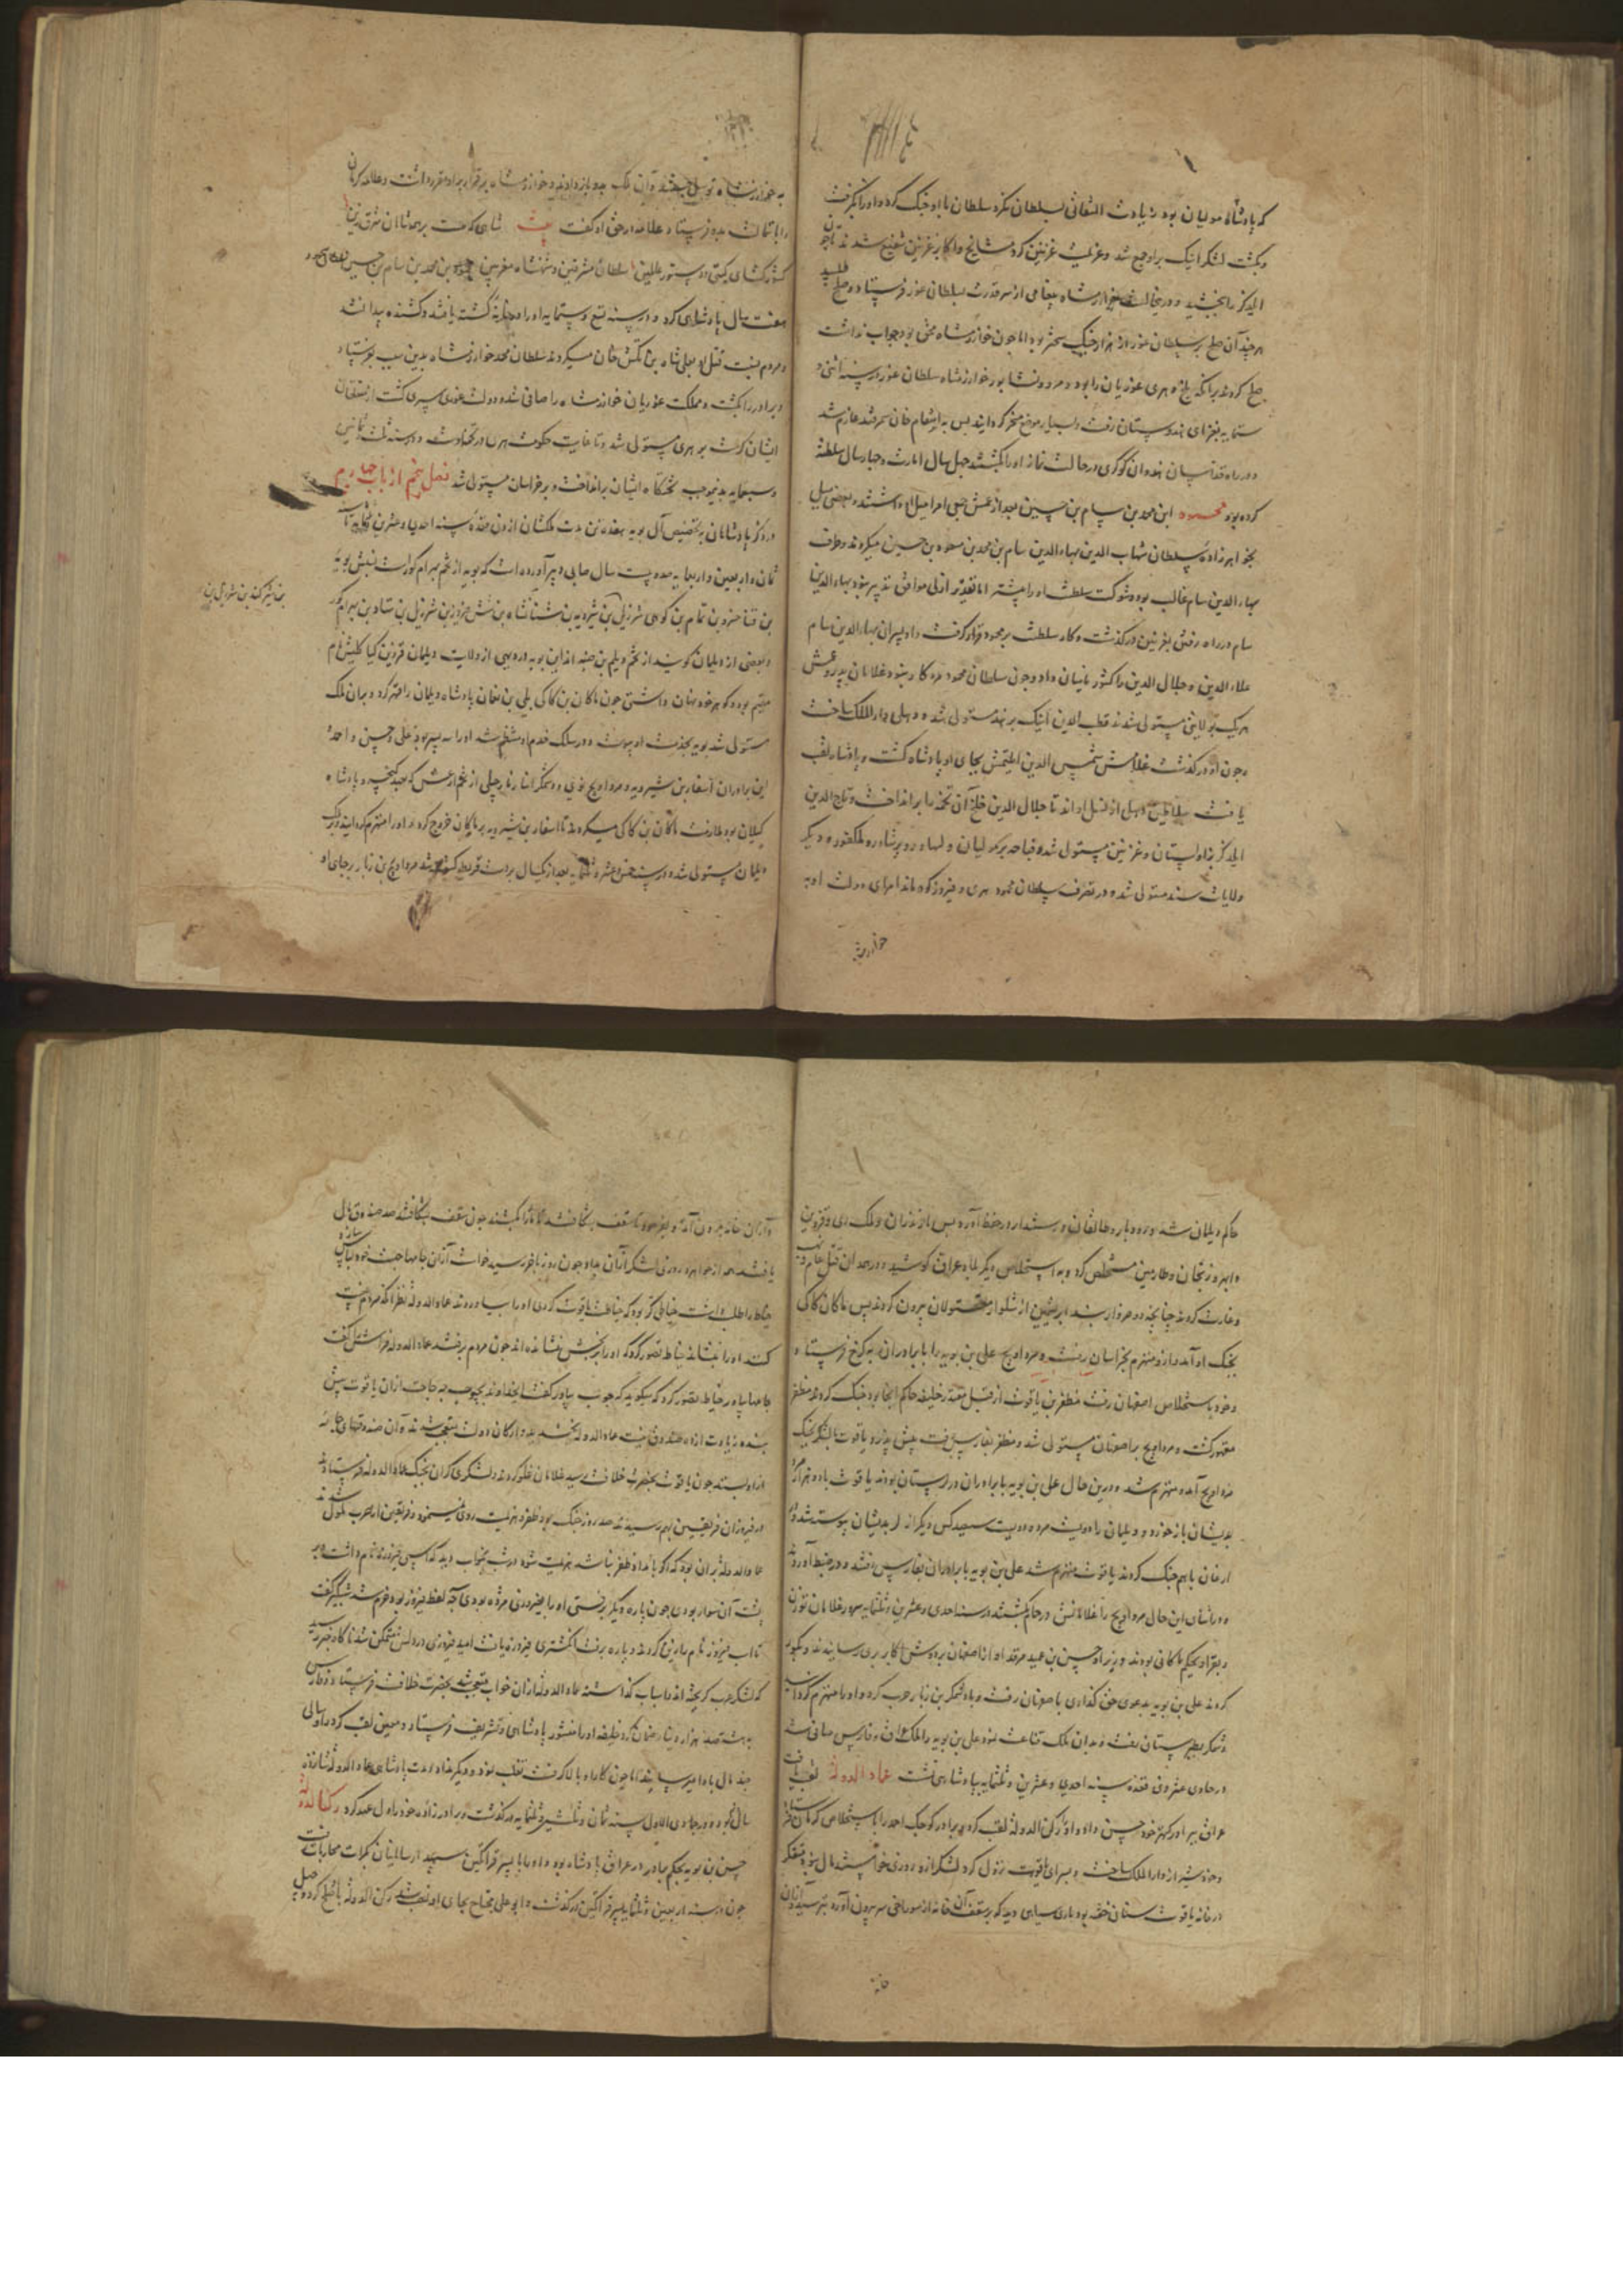 که پادشاه مولیان بود زیادت التفاتی بسلطان نکرد سلطان با او جنگ کرد و او را بگرفت
و بکشت لشکر ایبک برو جمع شد و عزیمت غزنین کرد مشایخ و اکابر غزنین شفیع شدند تا
ایلدکز را بخشید و درین حالت خوارزمشاه پیغامی از سر قدرت بسلطان غور فرستاد و صلح طلبید
هر چند آن صلح بر سلطان غور از هزار جنگ سخت‌تر بود اما چون خوارزمشاه محق بود جواب نداشت
صلح کردند برانکه بلخ و هری غوریان را بود و مرو و نشابور خوارزمشاه سلطان غور در سنه اثنی و
ستمایه بغزای هندوستان رفت و بسیار موضع مسخر گردانید پس به انتقام خان سمرقند عازم شد
و در راه فداییان هندوان کوکری در حالت نماز او را بکشتند چهل سال امارت و چهار سال سلطنت
کرده بود محمود ابن محمد بن سام بن حسین بعد از عمش جمعی امرا میل او داشتند و بعضی میل
بخواهرزاده سلطان شهاب الدین بهاء الدین سام بن محمد بن مسعود بن حسین میکردند و طرف
بهاء الدین سام غالب بود و شوکت سلطنت او را بیشتر اما تقدیر ازلی موافق تدبیر نبود بهاء الدین
سام در راه رفتن بغزنین درگذشت و کار سلطنت بر محمود قرار گرفت و او پسران بهاء الدین سام
علاء الدین و جلال الدین را کشور بامیان داد و چون سلطان محمود مرد کار نبود غلامان پدر و عمش
هر یک بولایتی مستولی شدند قطب الدین ایبک بر هند مستولی شد و دهلی دار الملک ساخت
و چون او درگذشت غلامش شمس الدین ایلتمش بجای او پادشاه گشت و
یافت سلاطین دهلی از نسل او اند تا جلال الدین خلج آن تخمه را برانداخت و تاج الدین
ایلدکز بزاولستان و غزنین مستولی شد و قباچه بر مولیان و لهاور و پرشاور و دیگر
ولایات سند مستولی شد و در تصرف سلطان محمود هری و فیروزکوه ماند امرای دولت او به
خوارزمشاه
به خوارزمشاه توسل جستند و آن ملک بدو باز دادند و خوارزمشاه برقرار بر او مقرر داشت و علامه کرمان
را با تمالت بدو فرستاد و علامه در حق او گفت بیت شاهی که هست بر همه شاهان شرق زین
کشورگشای گیتی و دستور عالمین سلطان مشرقین و شهنشاه مغربین محمود بن محمد بن سام بن حسین سلطان محمود
هفت سال پادشاهی کرد و در سنه تسع و ستمایه او را در خانه کشته یافتند و کشنده پیدا نشد
و مردم نسبت قتل او بعلی شاه بن تکش خان میکردند سلطان محمد خوارزمشاه بدین سبب بفرستاد
و برادر را بکشت و مملکت غوریان خوارزمشاه را صافی شد و دولت غوری سپری گشت از متعلقان
ایشان کرت بر هری مستولی شد و تا غایت حکومت هری در تخم اوست و در سنه ثلث و ثمانین
و سبعمایه بتخت تختگاه ایشان برانداخت و بر خراسان مستولی شد فصل پنجم از باب چهارم
در ذکر پادشاهان بتخصیص آل بویه هفده تن مدت ملکشان از ذی قعده سنه احدی و عشرین و ثلثمایه تا
ثمان و اربعین و اربعمایه صد و بیست سال صابی دبیر آورده است که بویه از تخم بهرام گور است نسبش بویه
بن فنا خسرو بن تمام بن کوهی شیرزیل بن شیرویه بن شستان شاه بن شیرزیل بن سناد بن بهرام گور
و بعضی از دیلمان گویند از تخم دیلم بن ضبه اند این بویه در دیهی از ولایت دیلمان قزوین کیا کلیش نام
مقیم بود و گوهر خود پنهان داشتی چون ماکان بن کاکی بن نعمان پادشاه دیلمان را قهر کرد و بران ملک
مستولی شد بویه بخدمت او پیوست و در سلک خدم او منظم شد او را سه پسر بود علی و حسن و احمد
این برادران اسفار بن شیرویه و مرداویج و وشمگیر ابنا زیار جیلی از تخم ارغش که بعهد کیخسرو پادشاه
گیلان بود ملازمت ماکان بن کاکی میکردند تا اسفار بن شیرویه بر ماکان خروج کرد و او را منهزم گردانید و بر ملک
دیلمان مستولی شد در سنه خمس عشر و ثلثمایه بعد از یکسال بر دست قرمطی کشته شد مرداویج بن زیار بر جای او
حاکم دیلمان شد و رودبار و طالقان و رستمدار در حفظ آورد پس مازندران و ملک ری و قزوین
و ابهر و زنجان و طارمین مستخلص کرد و به استخلاص دیگر بلاد عراق کوشید و در همدان قتل عام
و غارت کردند چنانچه دو خروار بند ابریشمین از شلوار مقتولان بیرون کردند پس ماکان کاکی
بجنگ او آمد و ازو منهزم بخراسان رفت و مرداویج علی بن بویه را با برادران به کرخ فرستاد
و خود باستخلاص اصفهان رفت مظفر بن یاقوت از قبل مقتدر خلیفه حاکم آنجا بود جنگ کردند مظفر
مقهور گشت و مرداویج بر اصفهان مستولی شد و مظفر بفارس رفت پیش پدر و یاقوت با لشکر بجنگ
مرداویج آمد و منهزم شد و درین حال علی بن بویه با برادران در لرستان بودند یاقوت با دو هزار مرد
بدیشان باز خورد و دیلمان راه دویست مرد و دویست سیصد کس دیگر از بدیشان پیوسته شد و در
ارغان با هم جنگ کردند یاقوت منهزم شد علی بن بویه با برادران بفارس رفتند و در ضبط آوردند
و در اثنای این حال مرداویج را غلامانش در حمام بکشتند در سنه احدی و عشرین و ثلثمایه سرور غلامان توزون
و بغرا و بجکم ماکانی بودند و وزیر او حسین بن عمید مرقد او از اصفهان بدوش اکابر بری رسانیدند و
کردند علی بن بویه بدعوی حق گذاری باصفهان رفت و با وشمگیر بن زیار حرب کرد و او را منهزم گردانید
وشمگیر بطبرستان رفت و بدان ملک قناعت نمود علی بن بویه را ملک عراق و فارس صافی شد
در حادی عشر ذی قعده سنه احدی و عشرین و ثلثمایه بپادشاهی نشست عماد الدوله لقب یافت
عراق ببرادر کهتر خود حسن داد و او را رکن الدوله لقب کرد و برادر کوچک احمد را باستخلاص کرمان فرستاد
و خود شیراز دار الملک ساخت و بسرای یاقوت نزول کرد لشکر ازو روزی خواستند مال نبود متفکر
در خانه یاقوت ستان خفته بود ماری سیاه دید که بر سقف آن خانه از سوراخی سر بیرون آورد بترسید و از آن
خانه
و از آن خانه بیرون آمد و بفرمود تا سقف بشکافند تا مار را بکشند چون سقف بشکافتند صد صندوق مال
یافتند همه از جواهر و روزی لشکر از آن بداد و چون روز باخر رسید خواست از آن جامها جهت خود لباس سازد
خیاط را طلب داشت خیاطی کر بود که خیاطت یاقوت کردی او را بیاوردند عماد الدوله بنظر آنکه مردم
کنند او را بنشاند خیاط تصور کرد که او را بنشانده اند چون مردم برفتند عماد الدوله فراش را گفت
جامها بیاور خیاط تصور کرد که میگوید که چوب بیاور گفت ای خداوند بچوب چه حاجت از آن یاقوت پیش
بنده زیادت از ده صندوق نیست عماد الدوله بخندید و ارکان دولت متعجب شدند و آن صندوقهای جامه
ازو بستد چون یاقوت بحضرت خلافت رسید غلامان غلو کردند و لشکری گران بجنگ عماد الدوله فرستادند
در فیروزان فریقین بهم رسیدند صد روز جنگ بود ظفر و هزیمت روی نمینمود و فریقین از حرب ملول شدند
عماد الدوله بران بود که اگر بامداد ظفر نباشد هزیمت شود در شب بخواب دید که اسپی فیروز نام داشت و بر
پشت آن سوار بودی چون پاره دیگر برفتی او را بفیروزی مژده بودی به لفظ فیروز بود خرم شد شبگیر گفت
تا اسب فیروز نام را زین کردند و پاره برفت انگشتری فیروزه یافت امید فیروزی در دلش متمکن شد ناگاه خبر رسید
که لشکر عرب گریخته اند و اسباب گذاشته عماد الدوله از آن خواب متعجب شد بحضرت خلافت فرستاد و فارس
به هشتصد هزار دینار ضمان کرد خلیفه او را منشور پادشاهی و تشریف فرستاد و معین لقب کرد و او سالی
چند مال بدو میرسانید اما چون کار او بالا گرفت تغلب نمود و دیگر نداد مدت پادشاهی عماد الدوله شانزده
سال بود و در جمادی الاول سنه ثمان و ثلثین و ثلثمایه درگذشت و برادرزاده خود را ولی عهد کرد رکن الدوله
حسن بن بویه بحکم برادر در عراق پادشاه بود و او را با پسر قراتگین سپهدار سامانیان بکرات محاربات رفت
چون در سنه اربعین و ثلثمایه پسر قراتگین درگذشت و ابو علی محتاج بجای او نصب شد رکن الدوله با او صلح کرد و